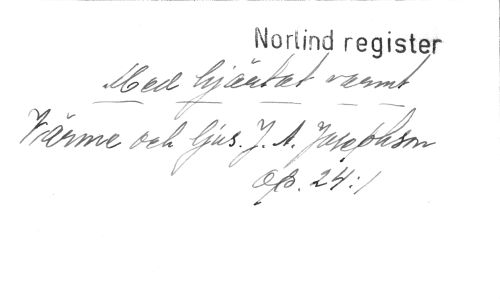 Norlind register
Med hjärtat varmt
Värme och ljus. J. A. Josephson
op. 24:1